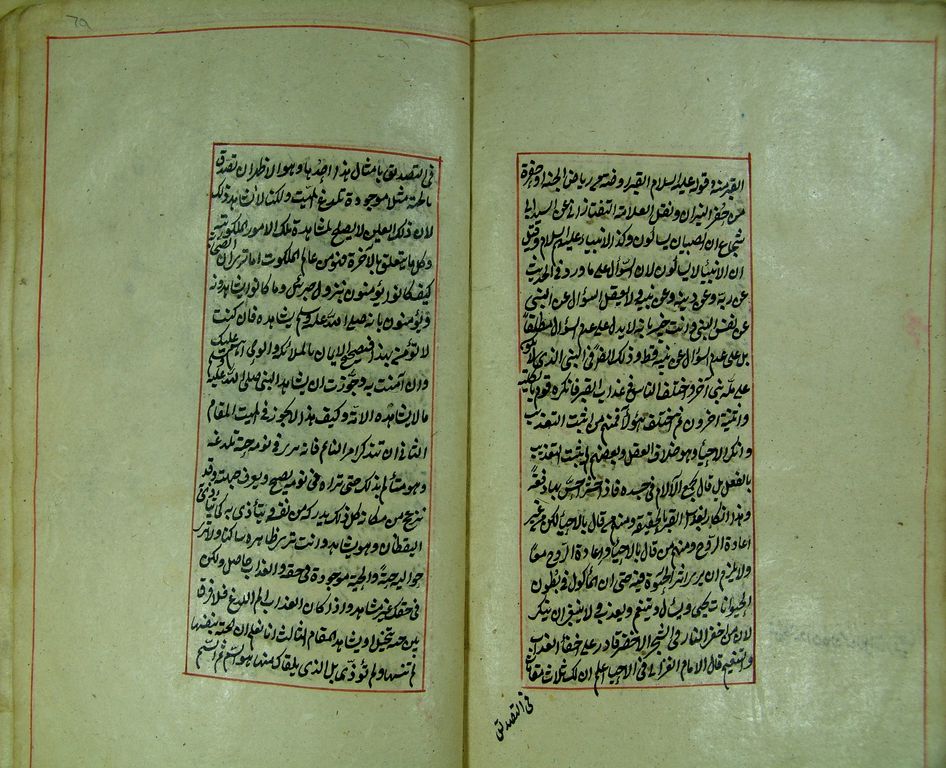 القبر منه قوله عليه السلام القبر روضة من رياض الجنة او حفرة
من حفر النيران ونقل العلامة التفتازاني عن السيد ابي
شجاع ان الصبيان يسألون وكذا الانبياء عليهم السلام وقيل
ان الانبياء لا يسألون لان السؤال على ما ورد في الحديث
عن ربه وعن دينه وعن نبيه ولا يعقل السؤال عن النبي
عن نفس النبي وانت خبير بانه لا يدل على عدم السؤال مطلقا
بل على عدم السؤال عن نبيه فقط وذلك ايضا في النبي الذي لا يكون
على ملة نبي آخر واختلف الناس في عذاب القبر فانكره قوم بالكلية
واثبته آخرون ثم اختلف هؤلاء فمنهم من اثبت التعذيب
وانكر الاحياء وهو خلاف العقل وبعضهم لم يثبت التعذيب
بالفعل بل قال تجمع الآلام في جسده فاذا حشر احس بها دفعة
وهذا انكار لعذاب القبر حقيقة ومنهم من قال بالاحياء لكن من غير
اعادة الروح ومنهم من قال بالاحياء واعادة الروح معا
ولا يلزم ان يرى اثر الحيوة فيه حتى ان المأكول في بطون
الحيوانات يحيى ويسأل وينعم ويعذب ولا ينبغي ان ينكر
لان من اخفى النار في الشجر الاخضر قادر على اخفاء العذاب
والتنعيم قال الامام الغزالي في الاحياء اعلم ان لك ثلث مقامات
في التصديق
في التصديق بامثال هذا احدها وهو الاظهر ان تصدق
بانها مثلا موجودة تلدغ الميت ولكنا لا نشاهد ذلك
لان ذلك العين لا يصلح لمشاهدة تلك الامور الملكوتية
وكل ما يتعلق بالآخرة فهو من عالم الملكوت اما ترى ان الصحابة
كيف كانوا يؤمنون بنزول جبرئيل وما كانوا يشاهدونه
ويؤمنون بانه صلى الله عليه وسلم يشاهده فان كنت
لا تؤمن بهذا فتصحيح الايمان بالملائكة والوحي اهم عليك
وان آمنت به وجوزت ان يشاهد النبي صلى الله عليه وسلم
ما لا يشاهده الامة وكيف هذا لا يجوز في الميت المقام
الثاني ان تتذكر امر النائم فانه يرى في نومه حية تلدغه
وهو متألم بذلك حتى تراه في نومه يصيح ويعرق جبهته وقد
ينزعج من مكانه كل ذلك يدرك من نفسه ويتأذى به كما يتأذى
اليقظان وهو يشاهده وانت ترى ظاهره ساكنا ولا ترى
حواليه حية والحية موجودة في حقه والعذاب حاصل ولكن
في حقك غير مشاهد واذا كان العذاب الم اللدغ فلا فرق
بين حية تتخيل او تشاهد المقام الثالث انا نعلم ان الحية بنفسها
لم تؤذ بل الذي يلقاك منها هو السم ثم السم